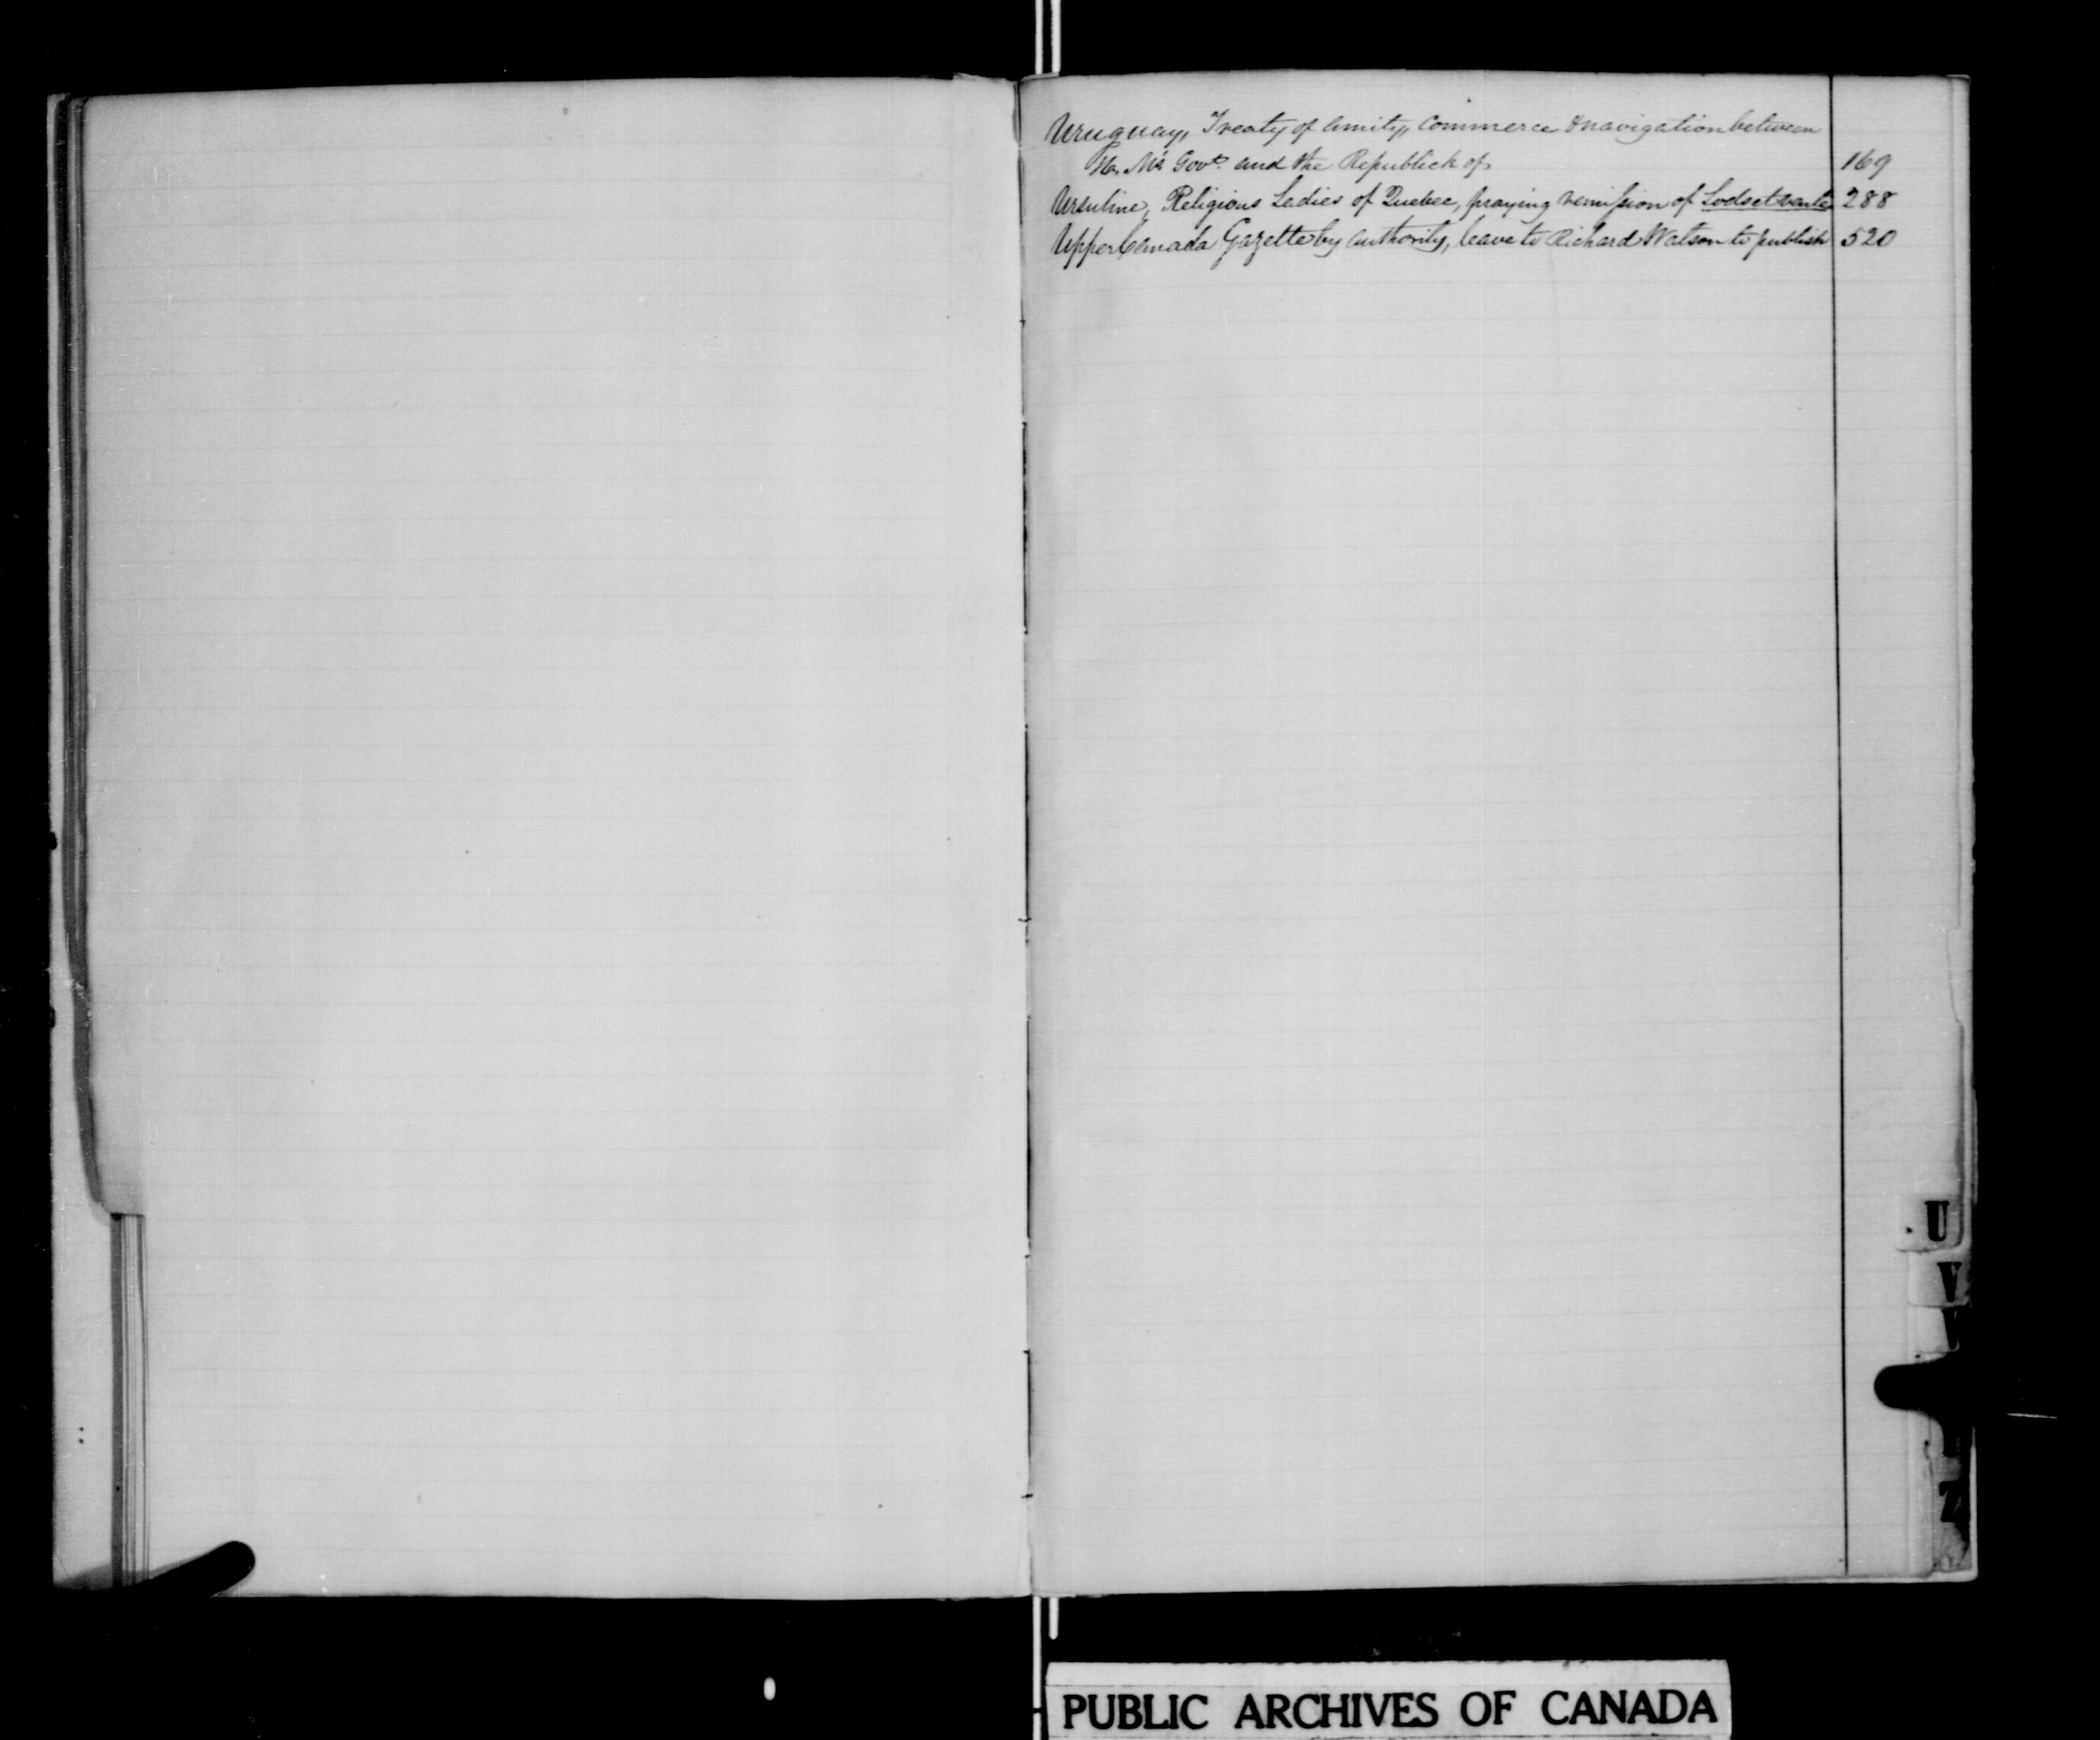 Uruguay, Treaty of Amity, Commerce & navigation between
H. M's Govt and the Republick of 169
Ursuline, Religious Ladies of Quebec, praying remission of Lods et vente 288
Upper Canada Gazette by authority, leave to Richard Watson to publish 520
U
V
Z
PUBLIC ARCHIVES OF CANADA